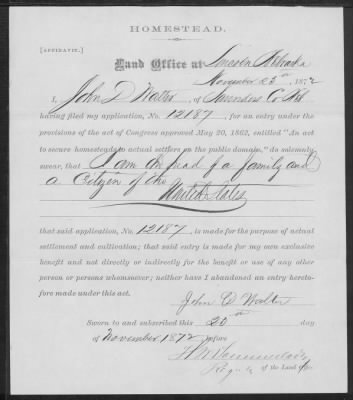 HOMESTEAD.
[AFFIDAVIT.]
Land Office at Lincoln Nebraska
November 23rd, 1872
I, John D Walter, of Saunders Co Neb
having filed my application, No. 12187, for an entry under
the provisions of the act of Congress approved May 20, 1862, entitled "An act
to secure homesteads to actual settlers on the public domain," do solemnly
swear, that I am the head of a family and
a Citizen of the
United States
that said application, No. 12187, is made for the purpose of actual
settlement and cultivation; that said entry is made for my own exclusive
benefit and not directly or indirectly for the benefit or use of any other
person or persons whomsoever; neither have I abandoned an entry hereto-
fore made under this act.
John D Walter
Sworn to and subscribed this 20th day
of November 1872, before
of the Land Office.